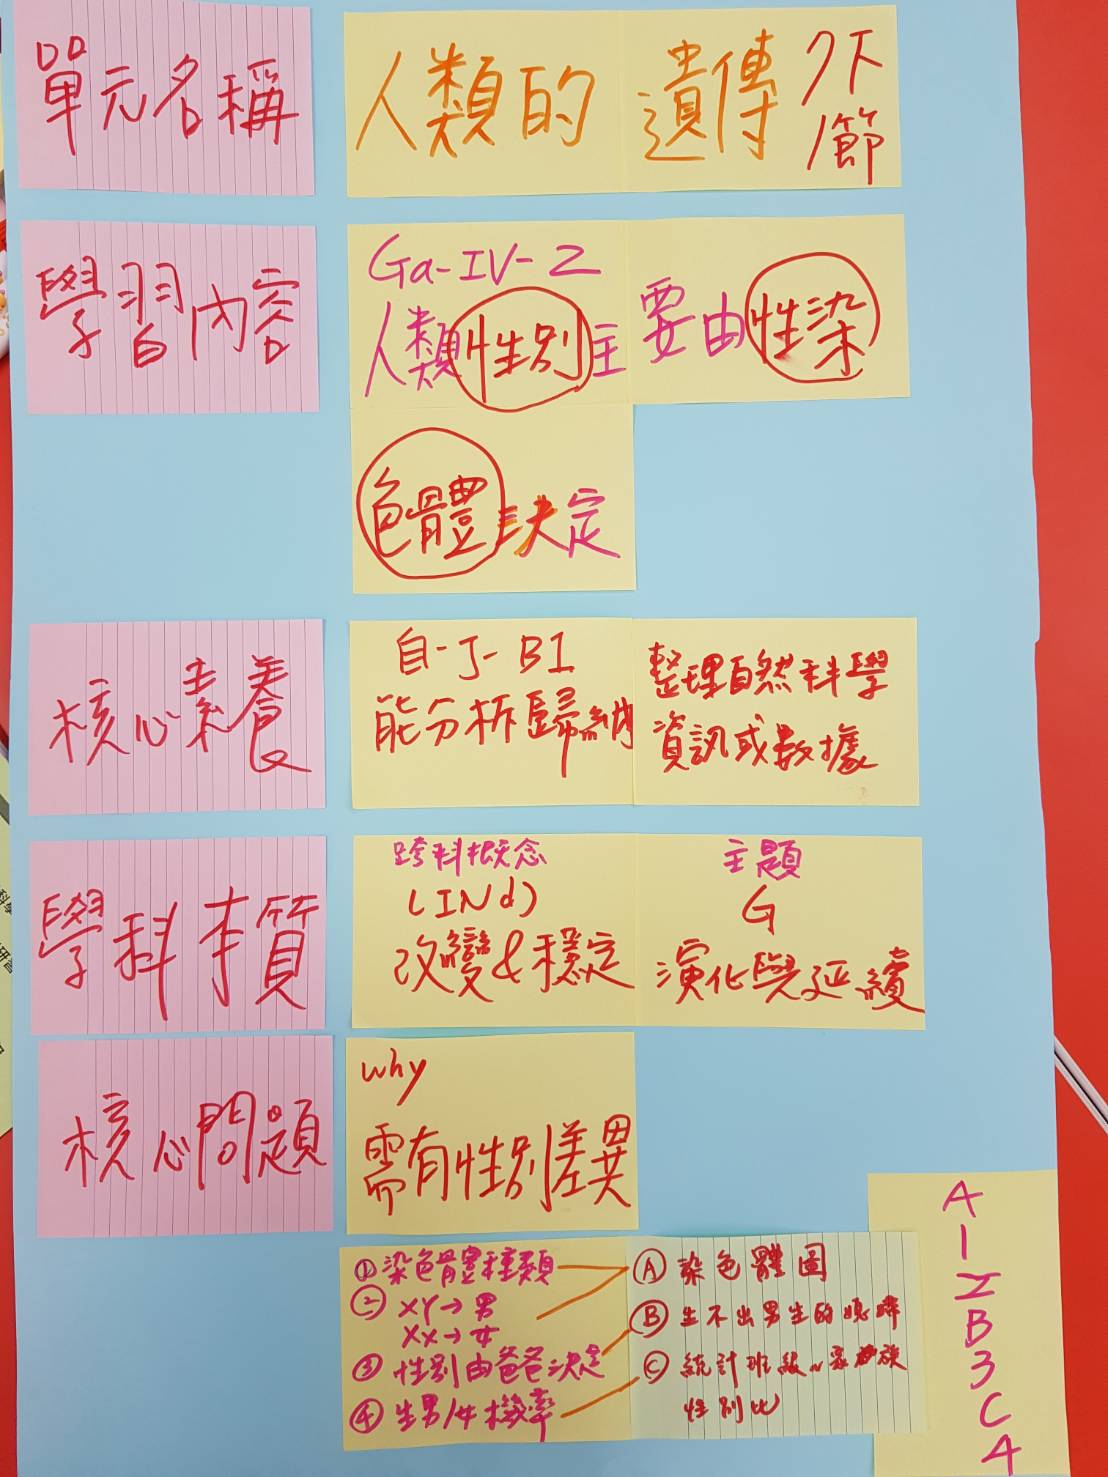 單元名稱
人類的遺傳
7下
1節
學習內容
Ga-IV-2
人類性別主要由性染
色體決定
核心素養
自-J-B1
能分析歸納
整理自然科學
資訊或數據
學科本質
跨科概念
(INd)
改變&穩定
主題
G
演化與延續
核心問題
why
需有性別差異
①染色體種類
②XY→男
XX→女
③性別由爸爸決定
④生男/女機率
Ⓐ染色體圖
Ⓑ生不出男生的媳婦
Ⓒ統計班級~家族
性別比
A
1
2
B
3
C
4